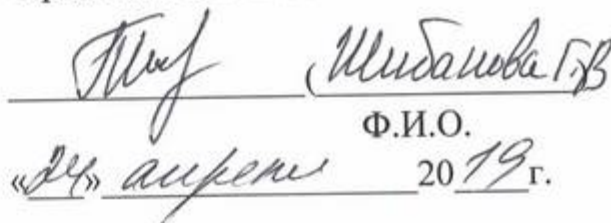 (Шибанова Г.В
Ф.И.О.
«24» апреля 2019 г.